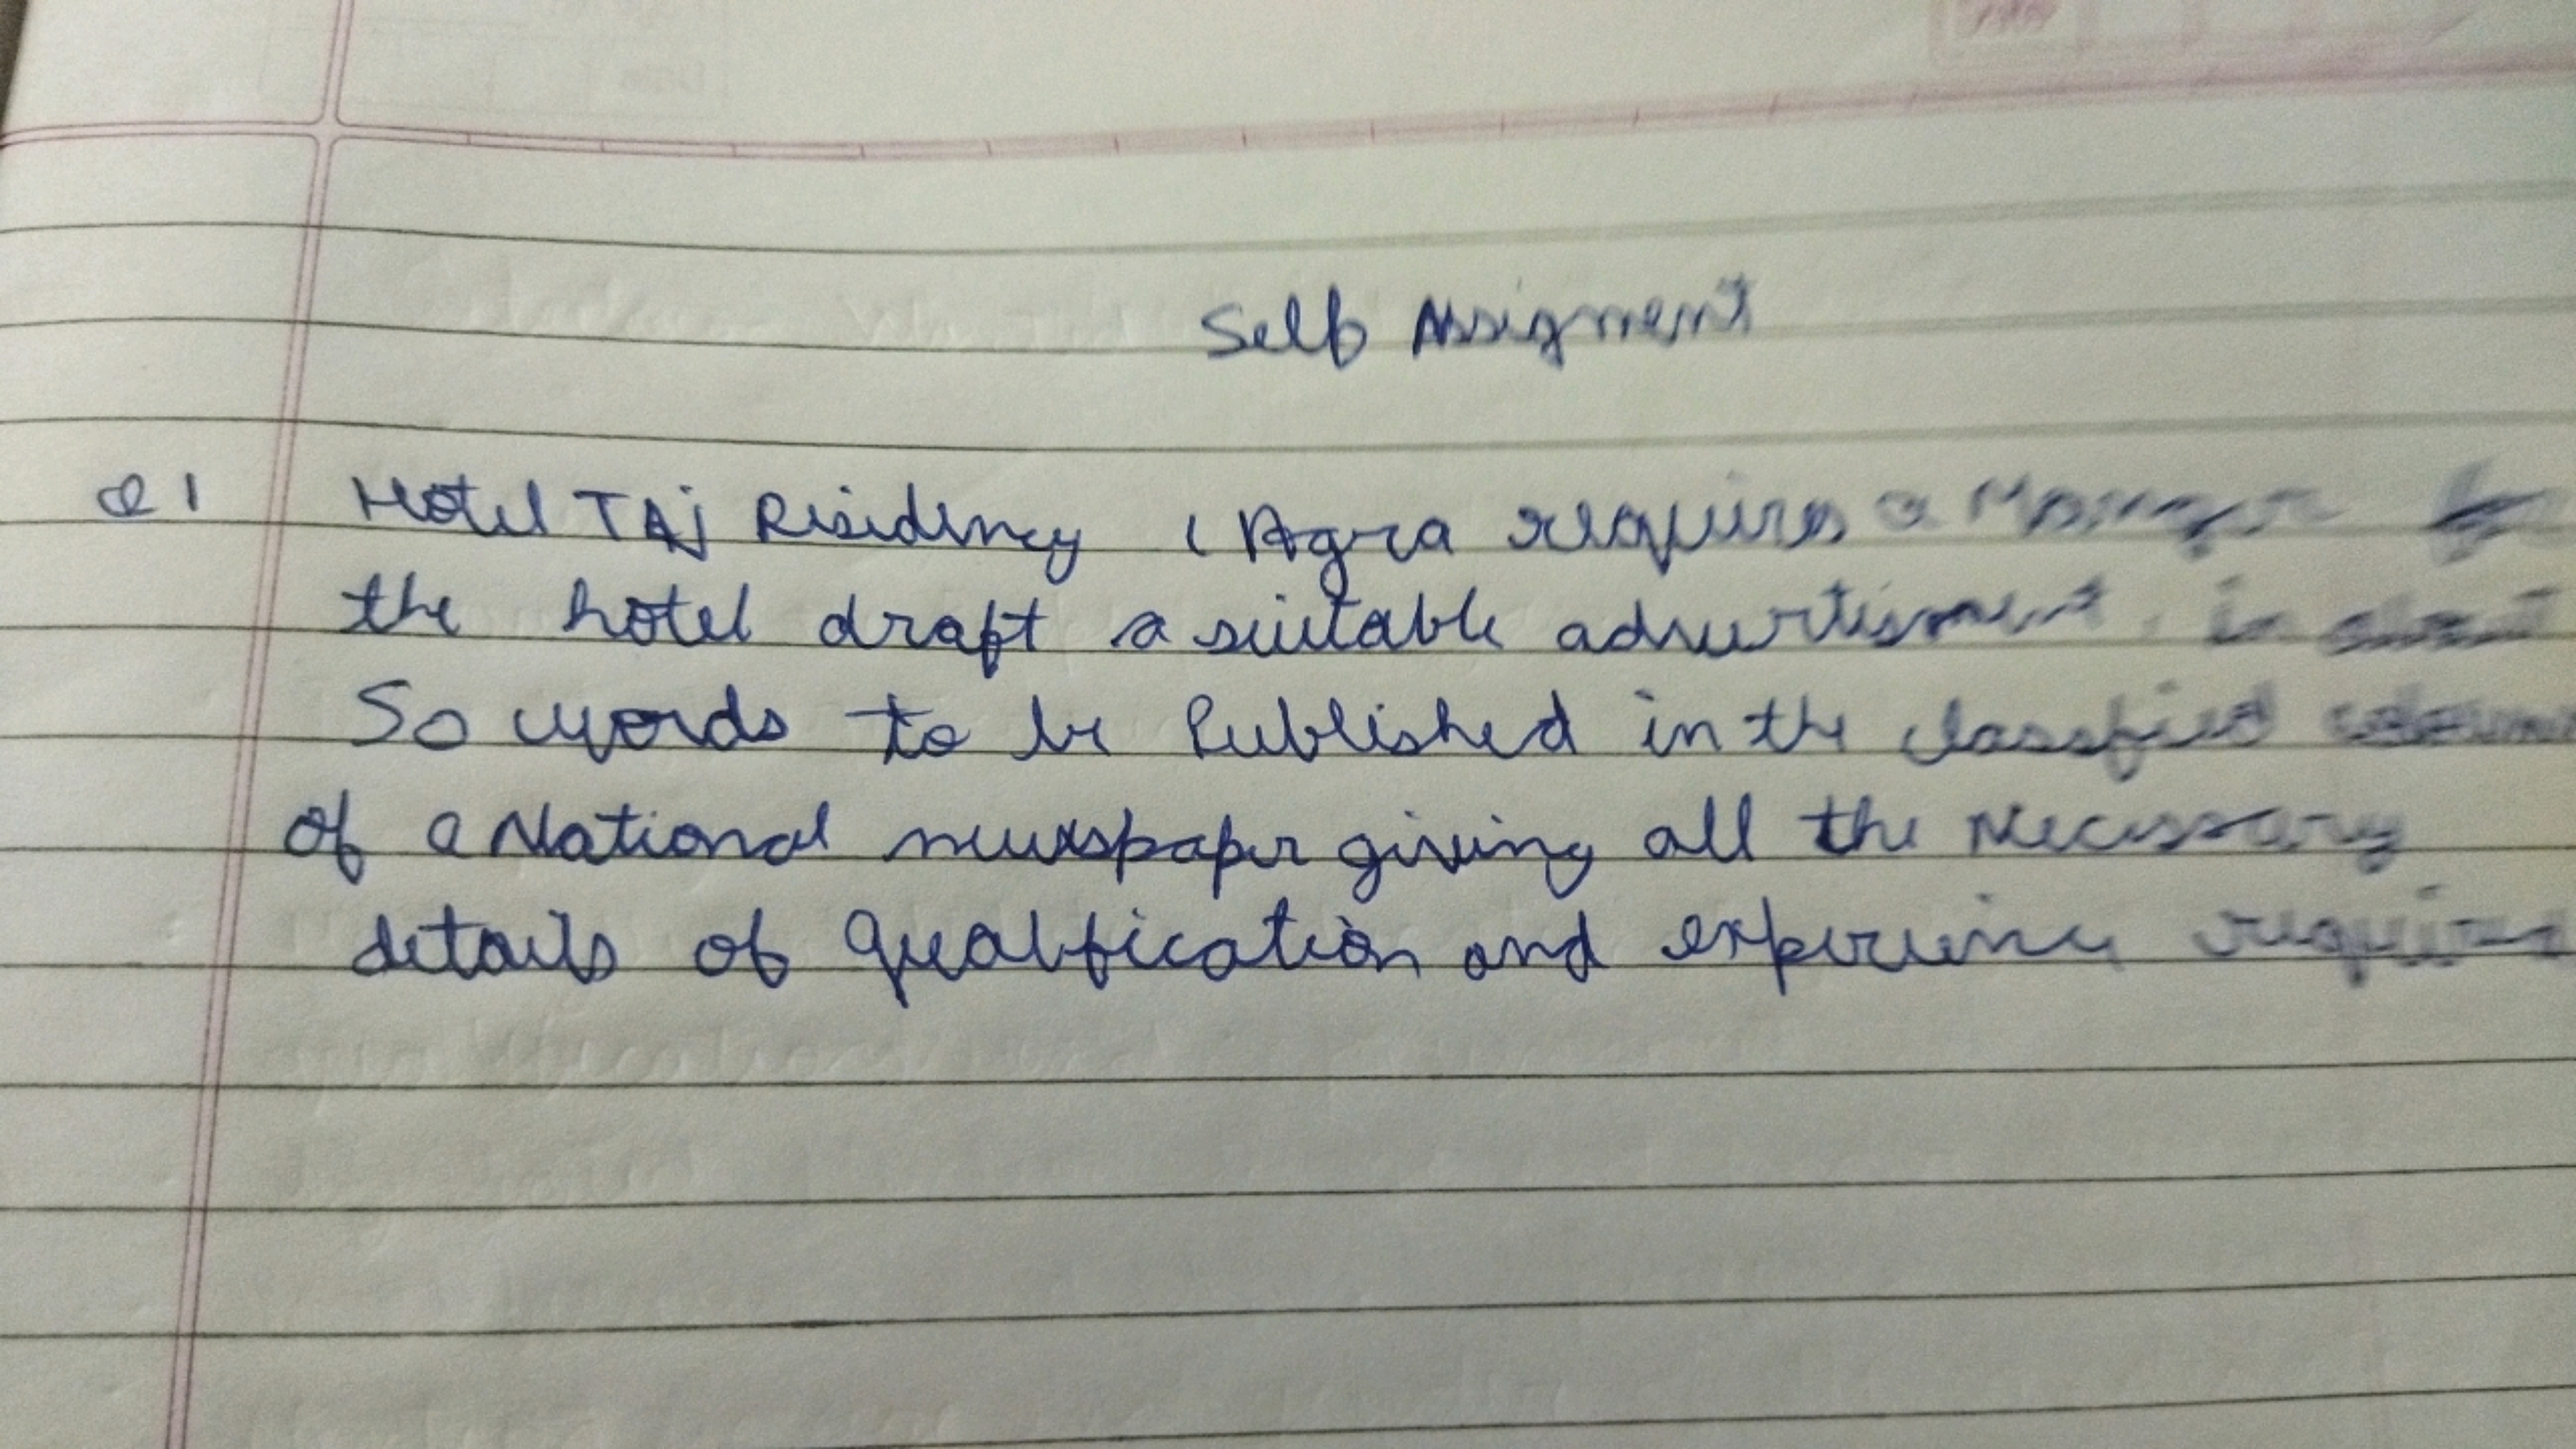 Self Assigment
Q1 Hotel TAj Residency ( Agra requires a Manager for
the hotel draft a suitable advertisment, in about
50 words to be Published in the classified
of a National newspaper giving all the Necessary
details of Qualification and experience